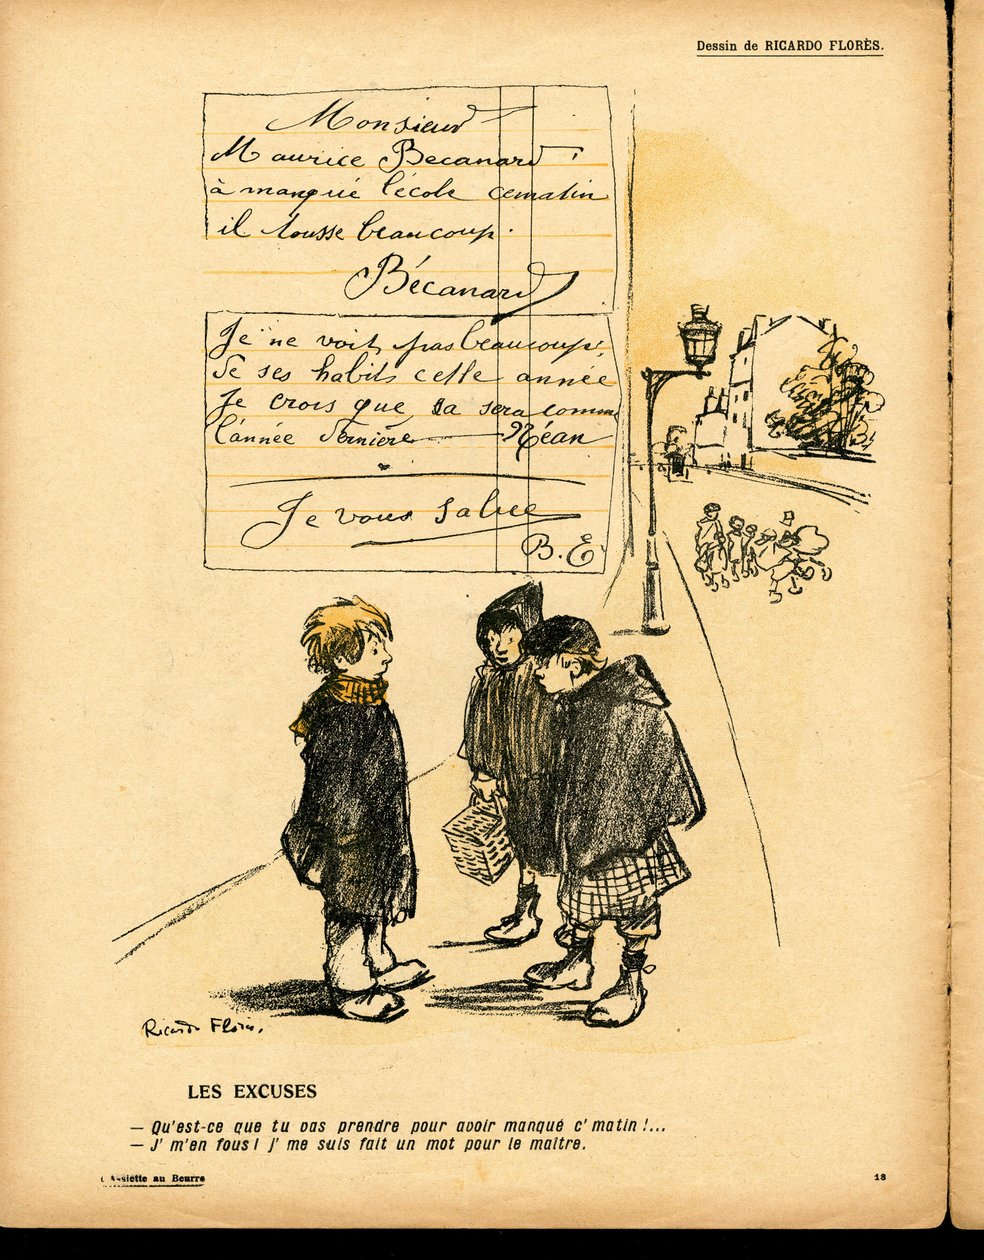 Dessin de RICARDO FLORÈS.
Monsieur
Maurice Becanard
à manqué l'école cematin
il tousse beaucoup.
Bécanard
Je ne voit pas beaucoup
de ses habits cette année
Je crois que sa sera comme
l'année dernière — Néan
Je vous salue
B. E
Ricardo Florès.
LES EXCUSES
— Qu'est-ce que tu vas prendre pour avoir manqué c' matin !...
— J' m'en fous ! j' me suis fait un mot pour le maître.
L'Assiette au Beurre
13